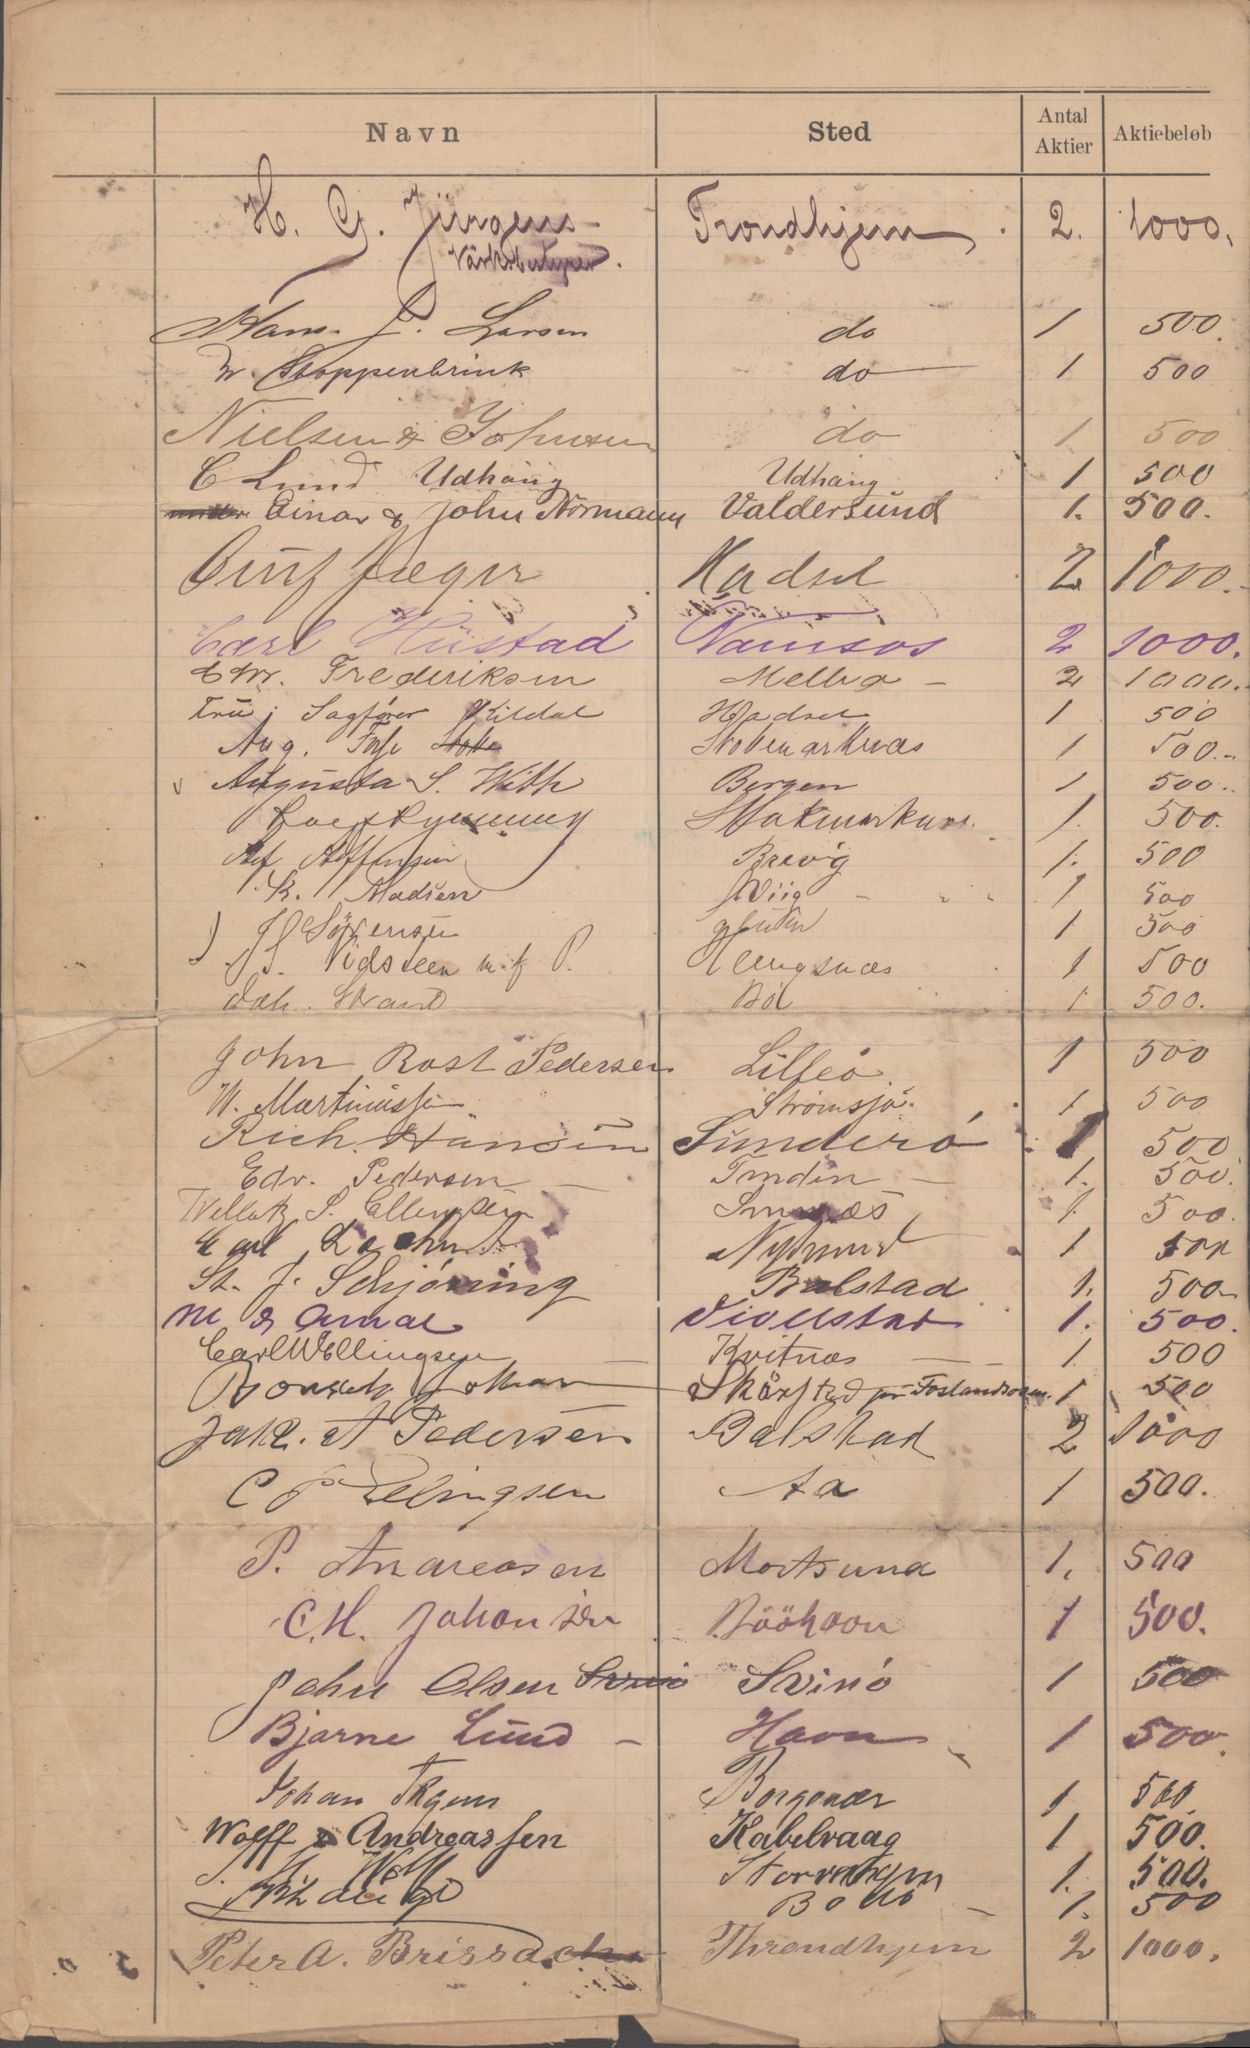 Navn Sted Antal Aktier Aktiebeløb
H. G. Jürgens Trondhjem 2. 1000.
Hans J. Larsen do 1 500.
W. Stoppenbrink do 1 500
Nielsen & Johnsen do 1 500
C Lund Udhäug Udhäug 1 500
Einar & John Normann Valdersund 1. 500.
Jæger Hadsel 2 1000.-
Carl Hustad Namsos 2 1000.
Edw. Frederiksen Melbo - 2 1000.
Fru Sagfører Kildal Hadsel 1 500
Aug. Stokmarknæs 1 500.-
Augusta S. With Bergen 1 500.
Stokmarknæs. 1. 500.
Steffensen 1. 500
K. Madsen 1 500
Sörensen 1 500
J. Vidsteen 1 500
Joh. Strand Bö 1 500.
John Rost Pedersen Lilleö 1 500
M. Martinussen Strömsjö 1 500
Rich. Hansen Sunderö 1 500
Edv. Pedersen - Tinden - 1. 500.
S. Ellingsen 1. 500.
Carl Nyksund 1 500
St. J. Schjöning Balstad 1. 500
1. 500.
Carl W Ellingsen - Kvitnæs - 1 500
Skårstad pr Foslandsosen. 1 500
Jak. A Pedersen Balstad 2 1000
C P Ellingsen Aa 1 500.
P. Andreasen Mortsund 1. 500
C. M. Johansen 1 500.
John Olsen Svinö Svinö 1 500
Bjarne Lund - Havn 1 500.
Johan 1 500
Wolff & Andreassen Kabelvaag 1 500.
Wolff 1. 500.
Bodö - 1. 500
Peter A. Throndhjem 2 1000.